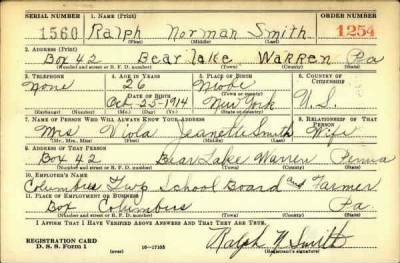 SERIAL NUMBER 1. NAME (Print) ORDER NUMBER
1560 Ralph Norman Smith 1254
(First) (Middle) (Last)
2. ADDRESS (Print)
Box 42 Bear Lake Warren Pa
(Number and street or R. F. D. number) (Town) (County) (State)
3. TELEPHONE 4. AGE IN YEARS 5. PLACE OF BIRTH 6. COUNTRY OF CITIZENSHIP
None 26 Niobe
DATE OF BIRTH (Town or county)
Oct-25-1914 New York U.S.
(Mo.) (Day) (Yr.) (State or country)
7. NAME OF PERSON WHO WILL ALWAYS KNOW YOUR ADDRESS 8. RELATIONSHIP OF THAT PERSON
Mrs Viola Jeanette Smith Wife
(Mr., Mrs., Miss) (First) (Middle) (Last)
9. ADDRESS OF THAT PERSON
Box 42 Bear Lake Warren Penna
(Number and street or R. F. D. number) (Town) (County) (State)
10. EMPLOYER'S NAME
Columbus Twp School Board and Farmer
11. PLACE OF EMPLOYMENT OR BUSINESS
Box Columbus Pa.
(Number and street or R. F. D. number) (Town) (County) (State)
I AFFIRM THAT I HAVE VERIFIED ABOVE ANSWERS AND THAT THEY ARE TRUE.
REGISTRATION CARD
D. S. S. Form 1 (over) 16-17105 Ralph N Smith